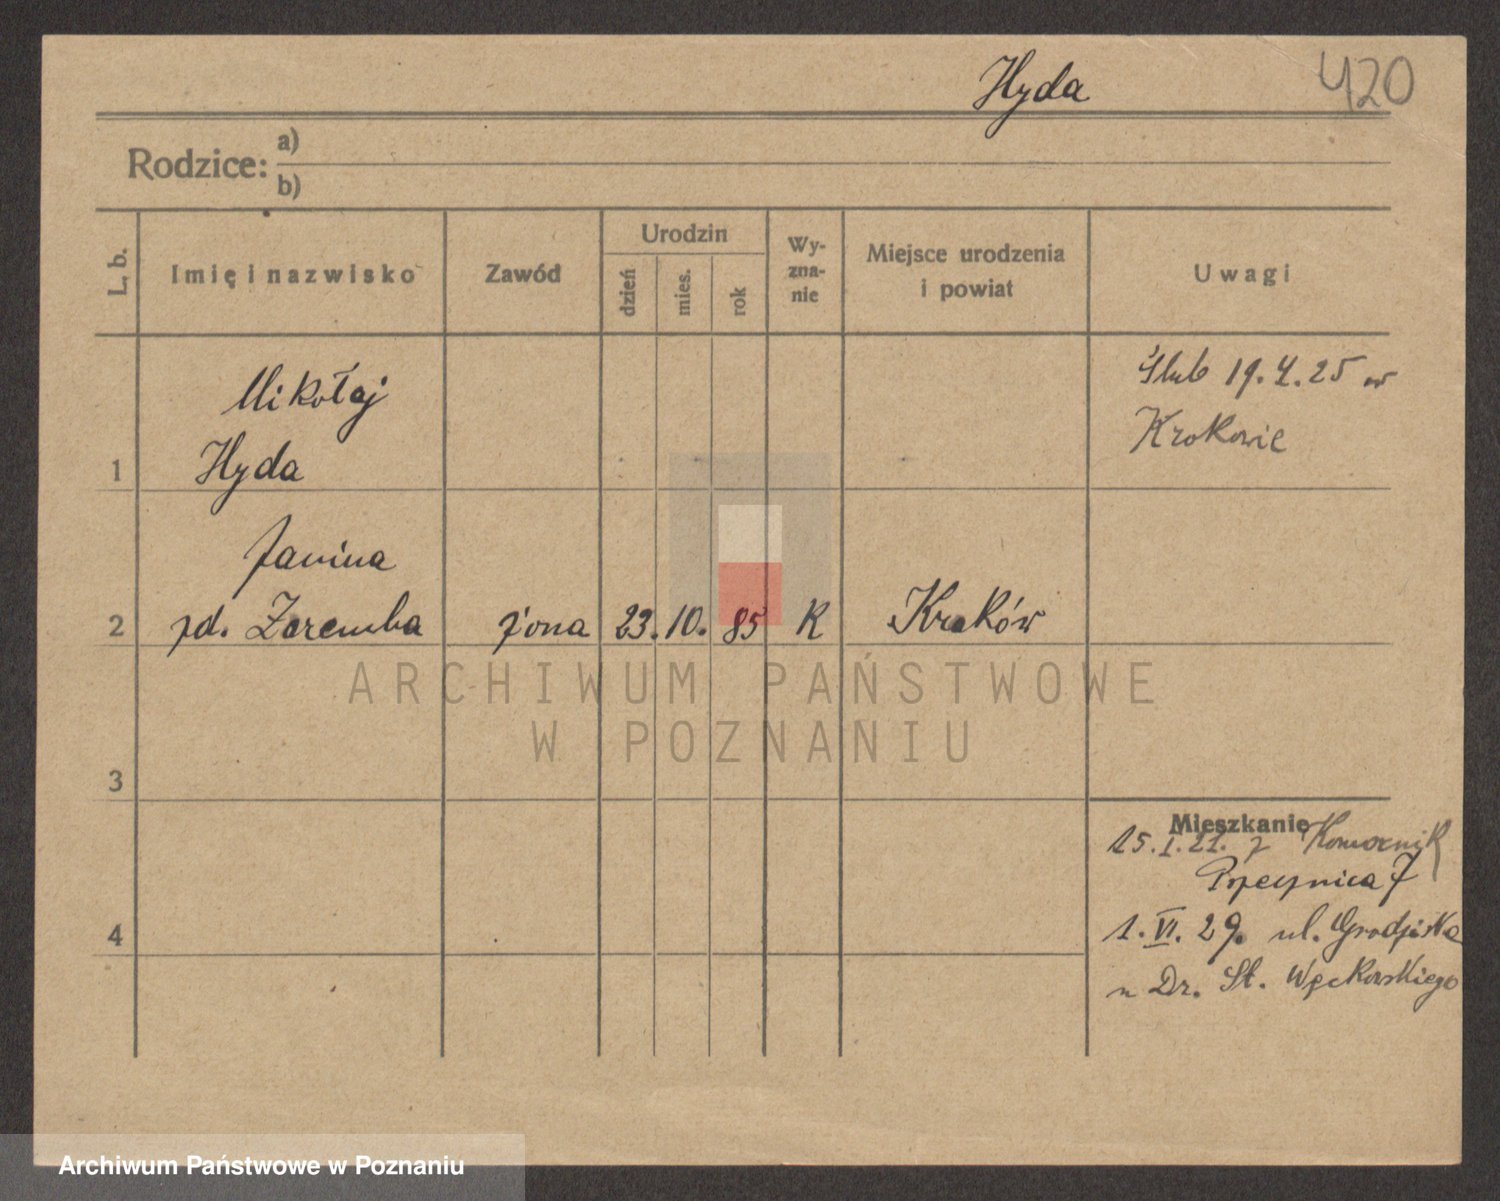 Hyda
420
Rodzice: a)
b)
L. b.
Imię i nazwisko
Zawód
Urodzin
dzień
mies.
rok
Wy-
zna-
nie
Miejsce urodzenia
i powiat
Uwagi
Mikołaj
Ślub 19.4.25 w
Krakowie
1 Hyda
Janina
2 zd. Zaremba żona 23. 10. 85 K Kraków
3
Mieszkanie
15.I.21. z Komornik
Pszczynica 7
4
1.VI.29. ul. Grodziska
u Dr. St. Węckowskiego
ARCHIWUM PAŃSTWOWE
W POZNANIU
Archiwum Państwowe w Poznaniu